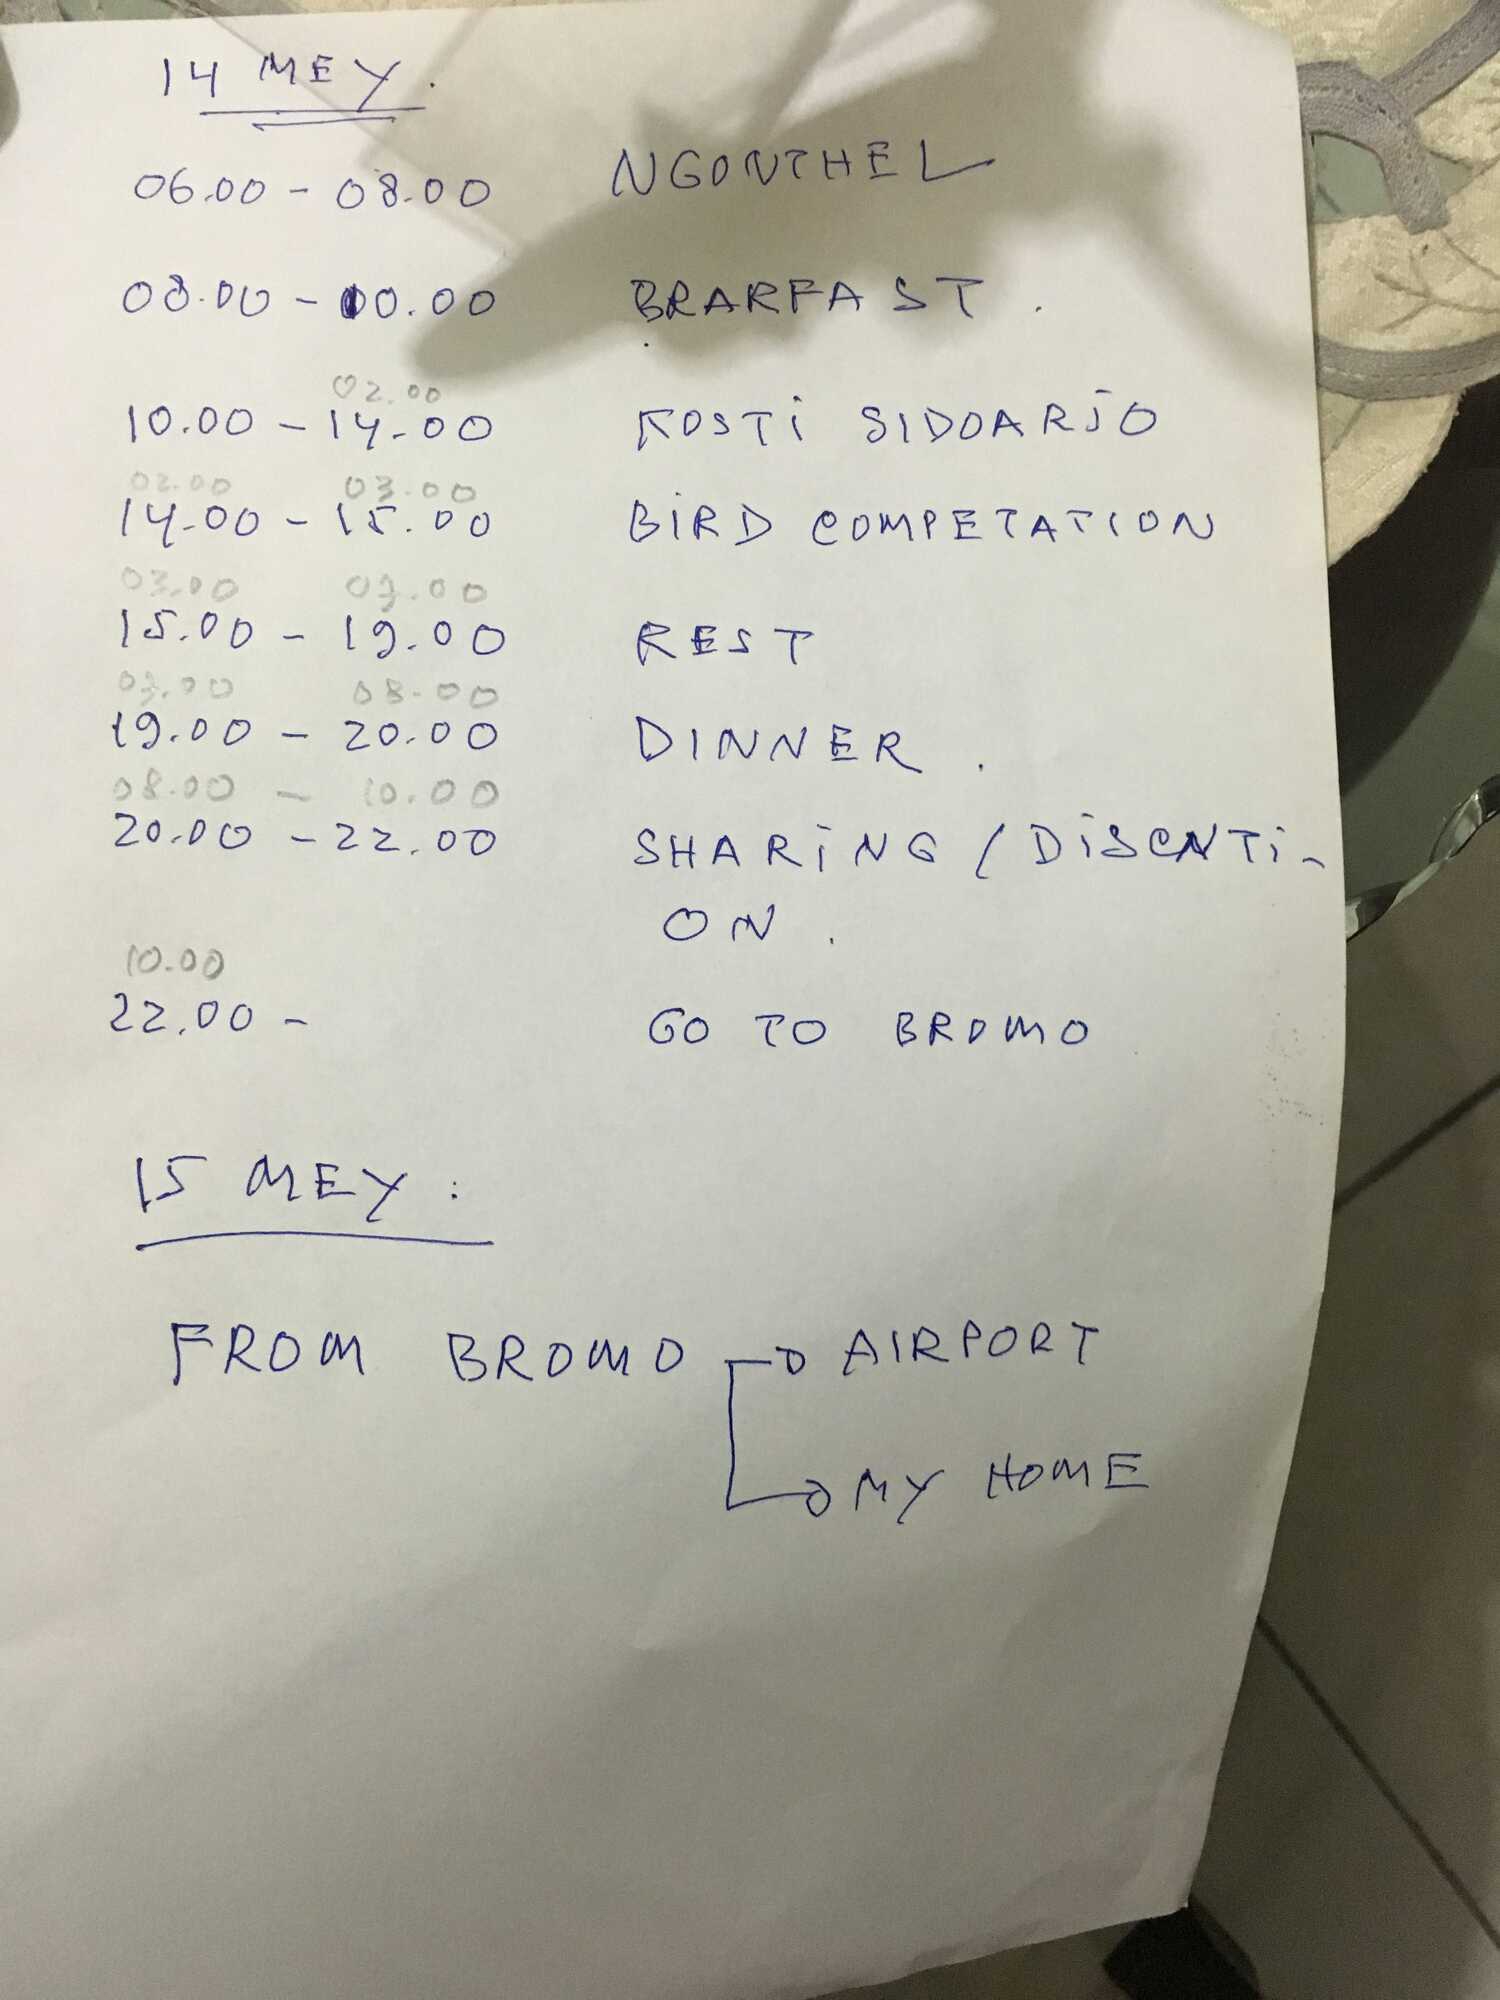 14 MEY.
06.00 - 08.00 NGONTHEL
08.00 - 10.00 BRARFAST.
02.00
10.00 - 14.00 KOSTI SIDOARJO
02.00 03.00
14.00 - 15.00 BIRD COMPETATION
03.00 07.00
15.00 - 19.00 REST
07.00 08.00
19.00 - 20.00 DINNER.
08.00 - 10.00
20.00 - 22.00 SHARING / DISCNTI-
ON.
10.00
22.00 - GO TO BROMO
15 MEY:
FROM BROMO → AIRPORT
→ MY HOME